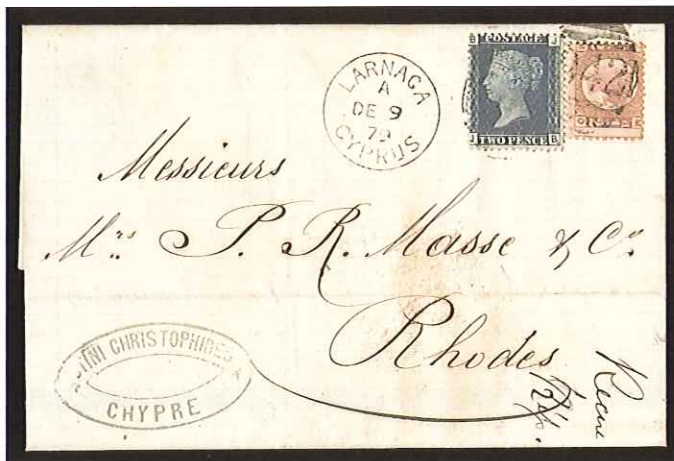 LARNACA
A
DE 9
79
CYPRUS
B POSTAGE J
J TWO PENCE B
Messieurs
Mrs. P. R. Masse & Co.
Rhodes
CHRISTOPHIDES
CHYPRE